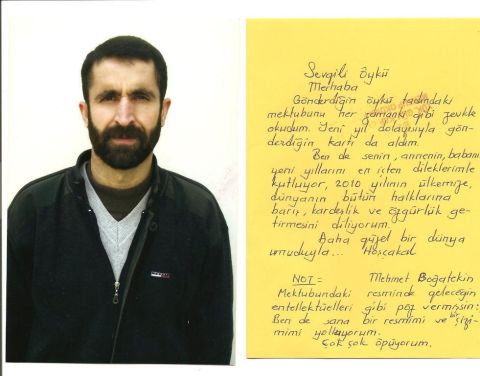 Sevgili Öykü
Merhaba
Gönderdiğin öykü tadındaki
mektubunu her zamanki gibi zevkle
okudum. Yeni yıl dolayısıyla gön-
derdiğin kartı da aldım.
Ben de senin, annenin, babanın
yeni yıllarını en içten dileklerimle
kutluyor, 2010 yılının ülkemize,
dünyanın bütün halklarına
barış, kardeşlik ve özgürlük ge-
tirmesini diliyorum.
Daha güzel bir dünya
umuduyla... Hoşçakal
Mehmet Boğatekin
NOT =
Mektubundaki resminde geleceğin
entellektüelleri gibi poz vermişsin:
Ben de sana bir resmimi ve bir çizi-
mimi yolluyorum.
Çok çok öpüyorum.